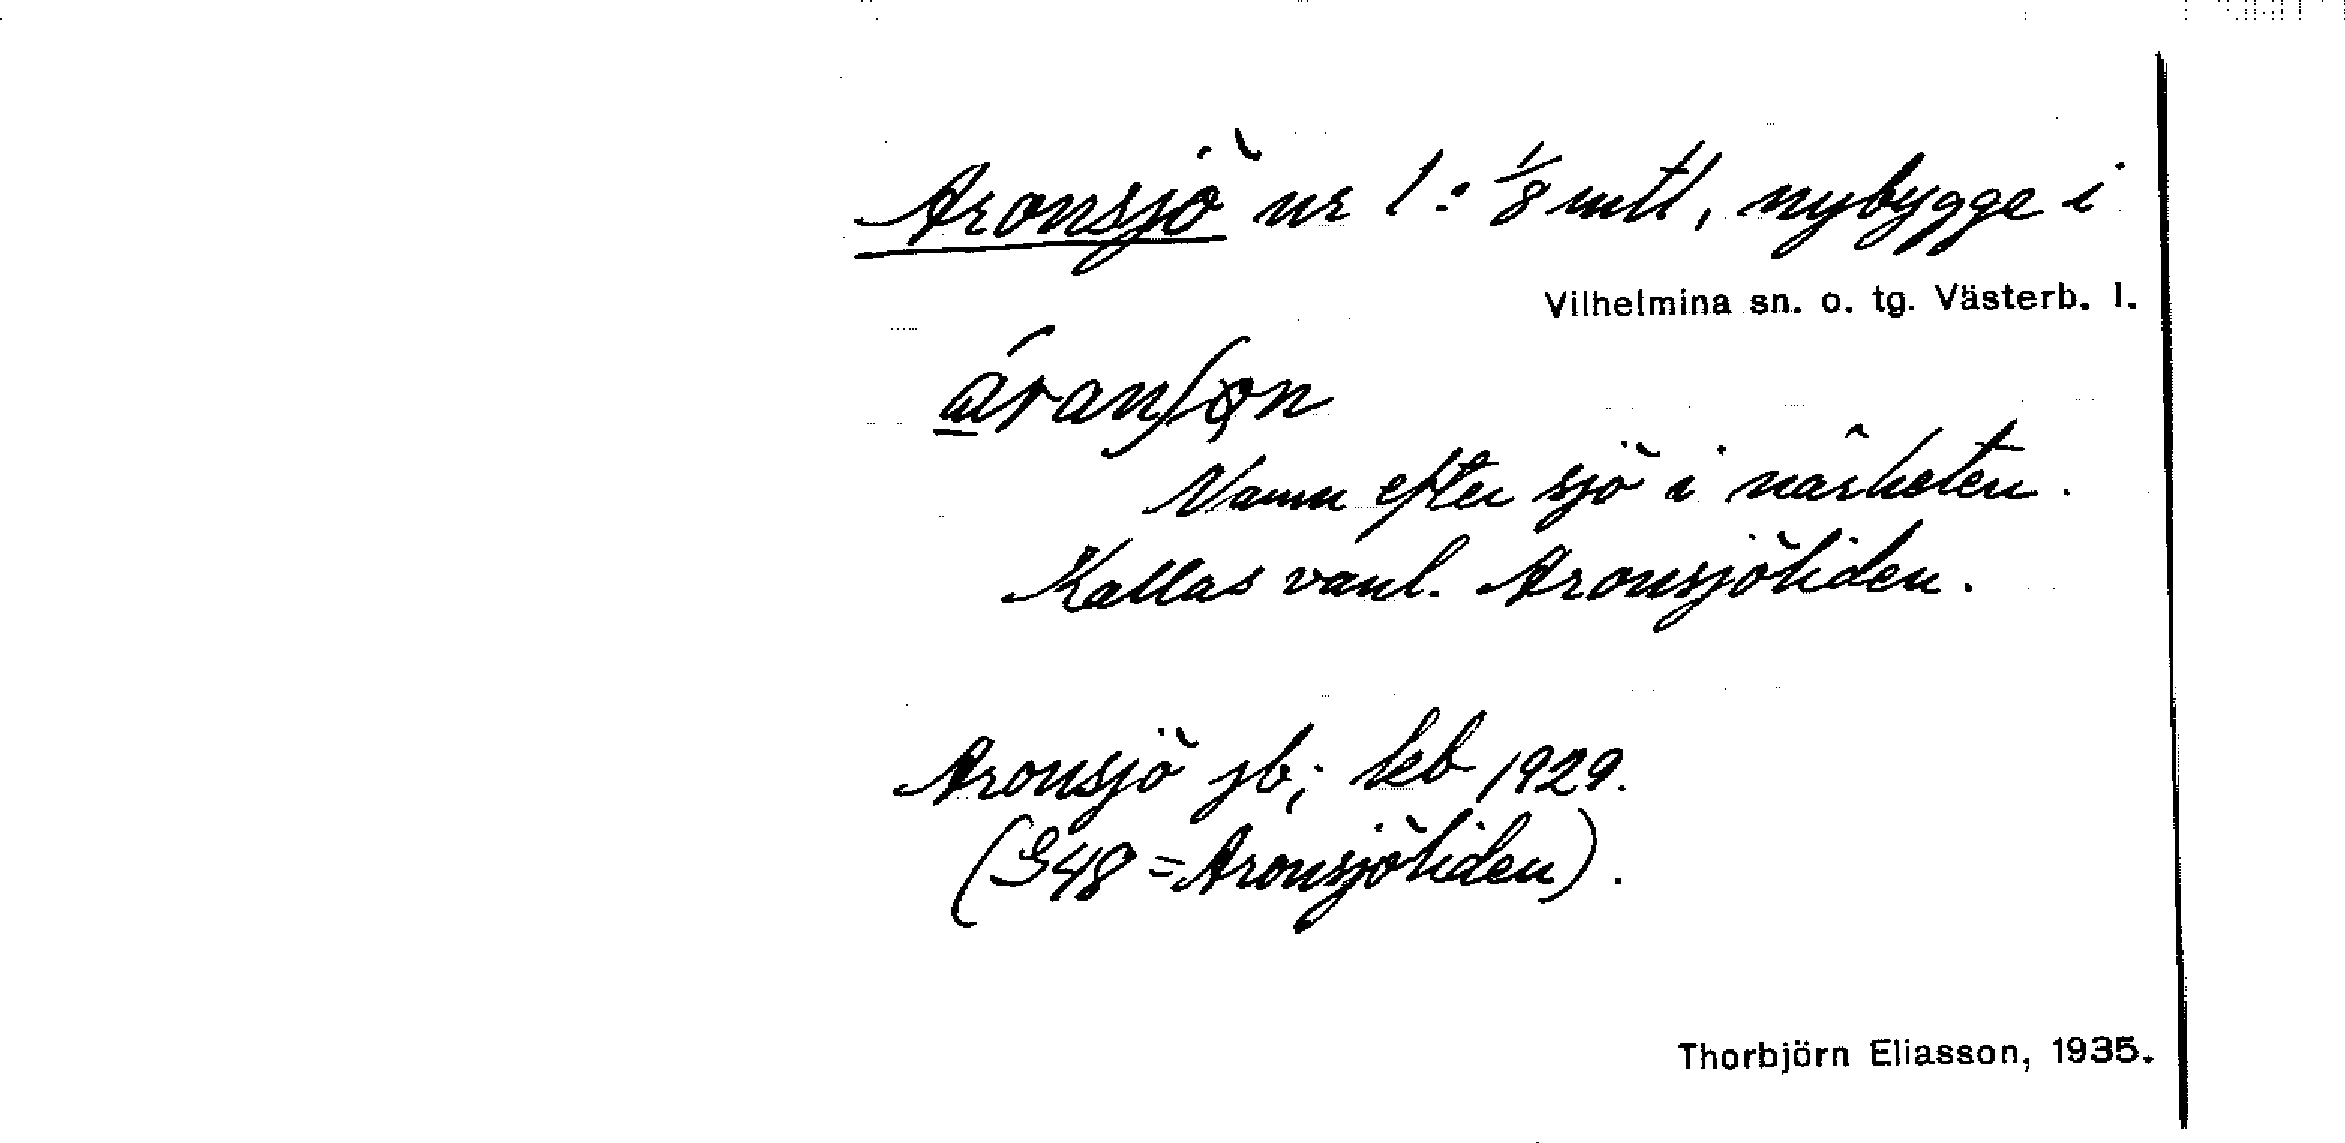 Aronsjö nr 1: 1/8 mtl, nybygge i
Vilhelmina sn. o. tg. Västerb. l.
Namn efter sjö i närheten.
Kallas vanl. Aronsjöliden.
Aronsjö jb; kb 1929.
(G48 = Aronsjöliden).
Thorbjörn Eliasson, 1935.